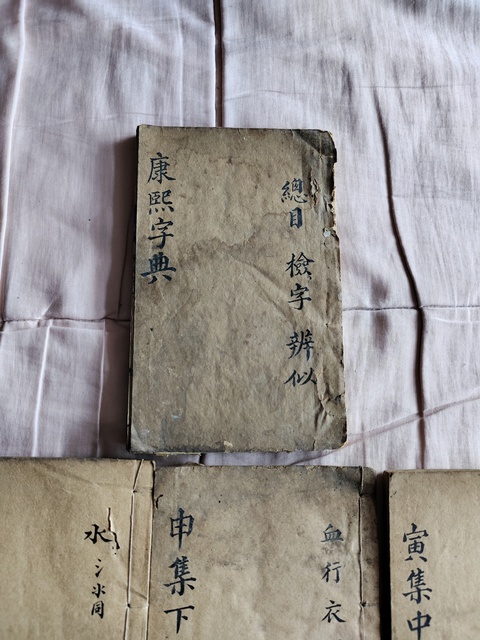 總目 檢字 辨似
康熙字典
寅集中
血行衣
申集下
水 氵氺同